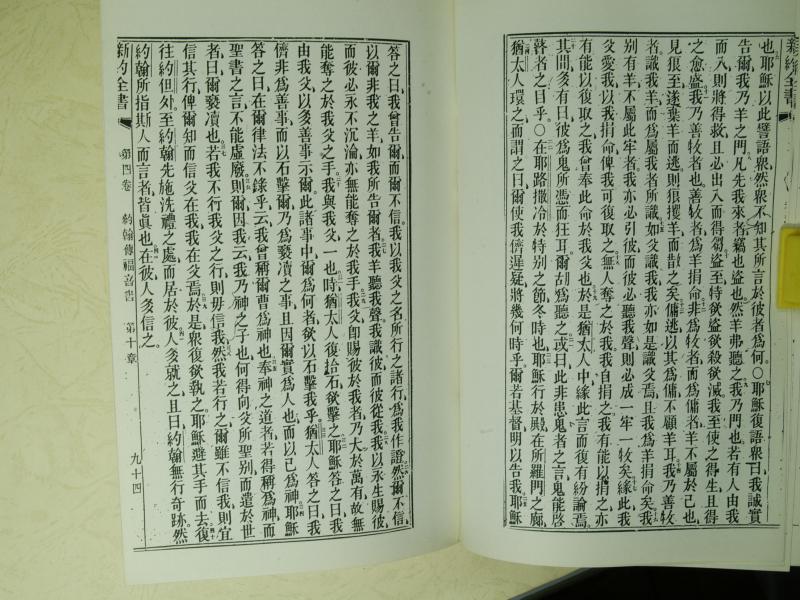 新約全書
也耶穌以此譬語衆然衆不知其所言於彼者爲何○耶穌復語衆曰我誠實
告爾我乃羊之門凡先我來者竊也盜也然羊弗聽之我乃門也若有人由我
而入則將得救且必出入而得芻盜至特欲盜欲殺欲滅我至使之得生且得
之愈盛我乃善牧者也善牧者爲羊捐命非爲牧者而爲傭者羊不屬於己也
見狼至遂棄羊而逃則狼攫羊而散之矣傭逃以其爲傭不顧羊耳我乃善牧
者識我羊而爲屬我者所識如父識我我亦如是識父焉且我爲羊捐命矣我
別有羊不屬此牢者我亦必引彼而彼必聽我聲則必成一牢一牧矣緣此我
父愛我以我捐命俾我可復取之無人奪之於我我自捐之我有能以捐之亦
有能以復取之我曾奉此命於我父也於是猶太人中緣此言而復有紛論焉
其間多有曰彼爲鬼所憑而狂耳爾胡爲聽之或曰此非患鬼者之言鬼能啓
瞽者之目乎○在耶路撒冷於特別之節冬時也耶穌行於殿在所羅門之廊
猶太人環之而謂之曰爾使我儕遲疑將幾何時乎爾若基督明以告我耶穌
答之曰我曾告爾而爾不信我以我父之名所行之諸行爲我作證然爾不信
以爾非我之羊如我所告爾者我羊聽我聲我識彼而彼從我我以永生賜彼
而彼必永不沉淪亦無能奪之於我手我父卽賜彼於我者乃大於萬有故無
能奪之於我父之手我與我父一也時猶太人復拾石欲擊之耶穌答之曰我
由我父以多善事示爾此諸事中爾爲何者欲以石擊我乎猶太人答之曰我
儕非爲善事而以石擊爾乃爲褻瀆之事且因爾實爲人也而以己爲神耶穌
答之曰在爾律法不錄乎云我曾稱爾曹爲神也奉神之道者若得稱爲神而
聖書之言不能虛廢則爾因我云我乃神之子也何得向父所聖別而遣於世
者曰爾褻瀆也若我不行我父之行則毋信我然我若行之爾雖不信我則宜
信其行俾爾知而信父在我我在父焉於是衆復欲執之耶穌避其手而去復
往約但外至約翰先施洗禮之處而居於彼人多就之且曰約翰無行奇跡然
約翰所指斯人而言者皆眞也在彼人多信之
新約全書
第四卷
約翰傳福音書
第十章
九十四